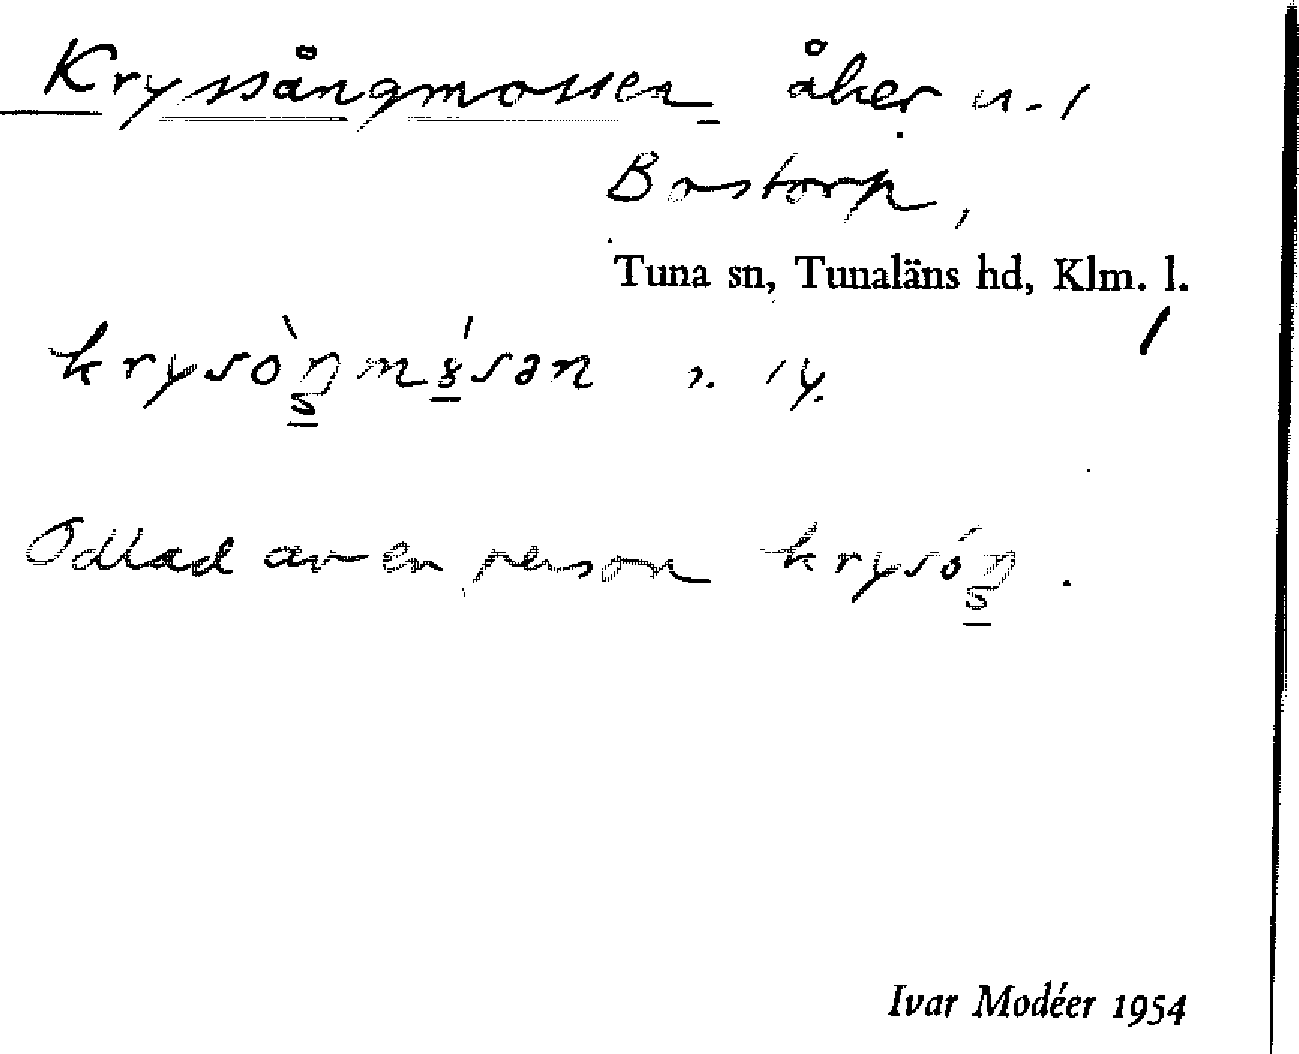 Kryssångmossen åker u. /
Bostorp,
Tuna sn, Tunaläns hd, Klm. l.
krysòŋmśsən
Odlad av en person krysóŋ.
Ivar Modéer 1954